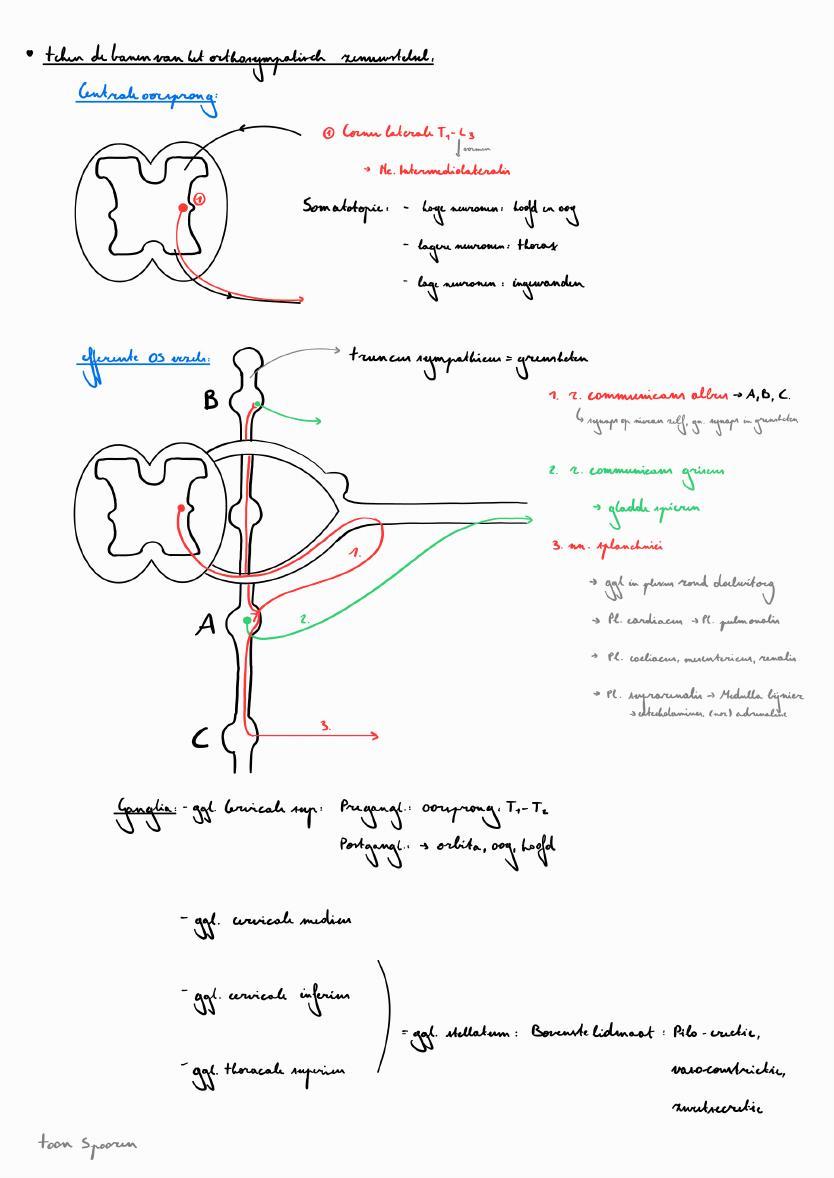 • teken de banen van het orthosympatisch zenuwstelsel.
Centrale oorsprong:
① Cornu laterale T₁-L₃
vormen
→ Nc. Intermediolateralis
①
Somatotopie: - hoge neuronen: hoofd en oog
- lagere neuronen: thorax
- lage neuronen: ingewanden
efferente OS vezels:
truncus sympathicus = grensketen
B
1. r. communicans albus → A, B, C.
↳ synaps op niveau zelf, gn. synaps in grensketen
2. r. communicans griseus
→ gladde spieren
1.
3. nn. splanchnici
→ ggl in plexus rond doelwitorg
A
2.
→ Pl. cardiacus → Pl. pulmonalis
→ Pl. coeliacus, mesentericus, renalis
→ Pl. suprarenalis → Medulla bijnier
→ catecholamines (nor) adrenaline
C
3.
Ganglia: - ggl. Cervicale sup: Pregangl.: oorsprong: T₁-T₂
Postgangl.: → orbita, oog, hoofd
- ggl. cervicale medius
- ggl. cervicale inferius
= ggl. stellatum: Bovenste lidmaat: Pilo-erectie,
- ggl. thoracale superius
vasoconstrictie,
zweetsecretie
toon Spooren